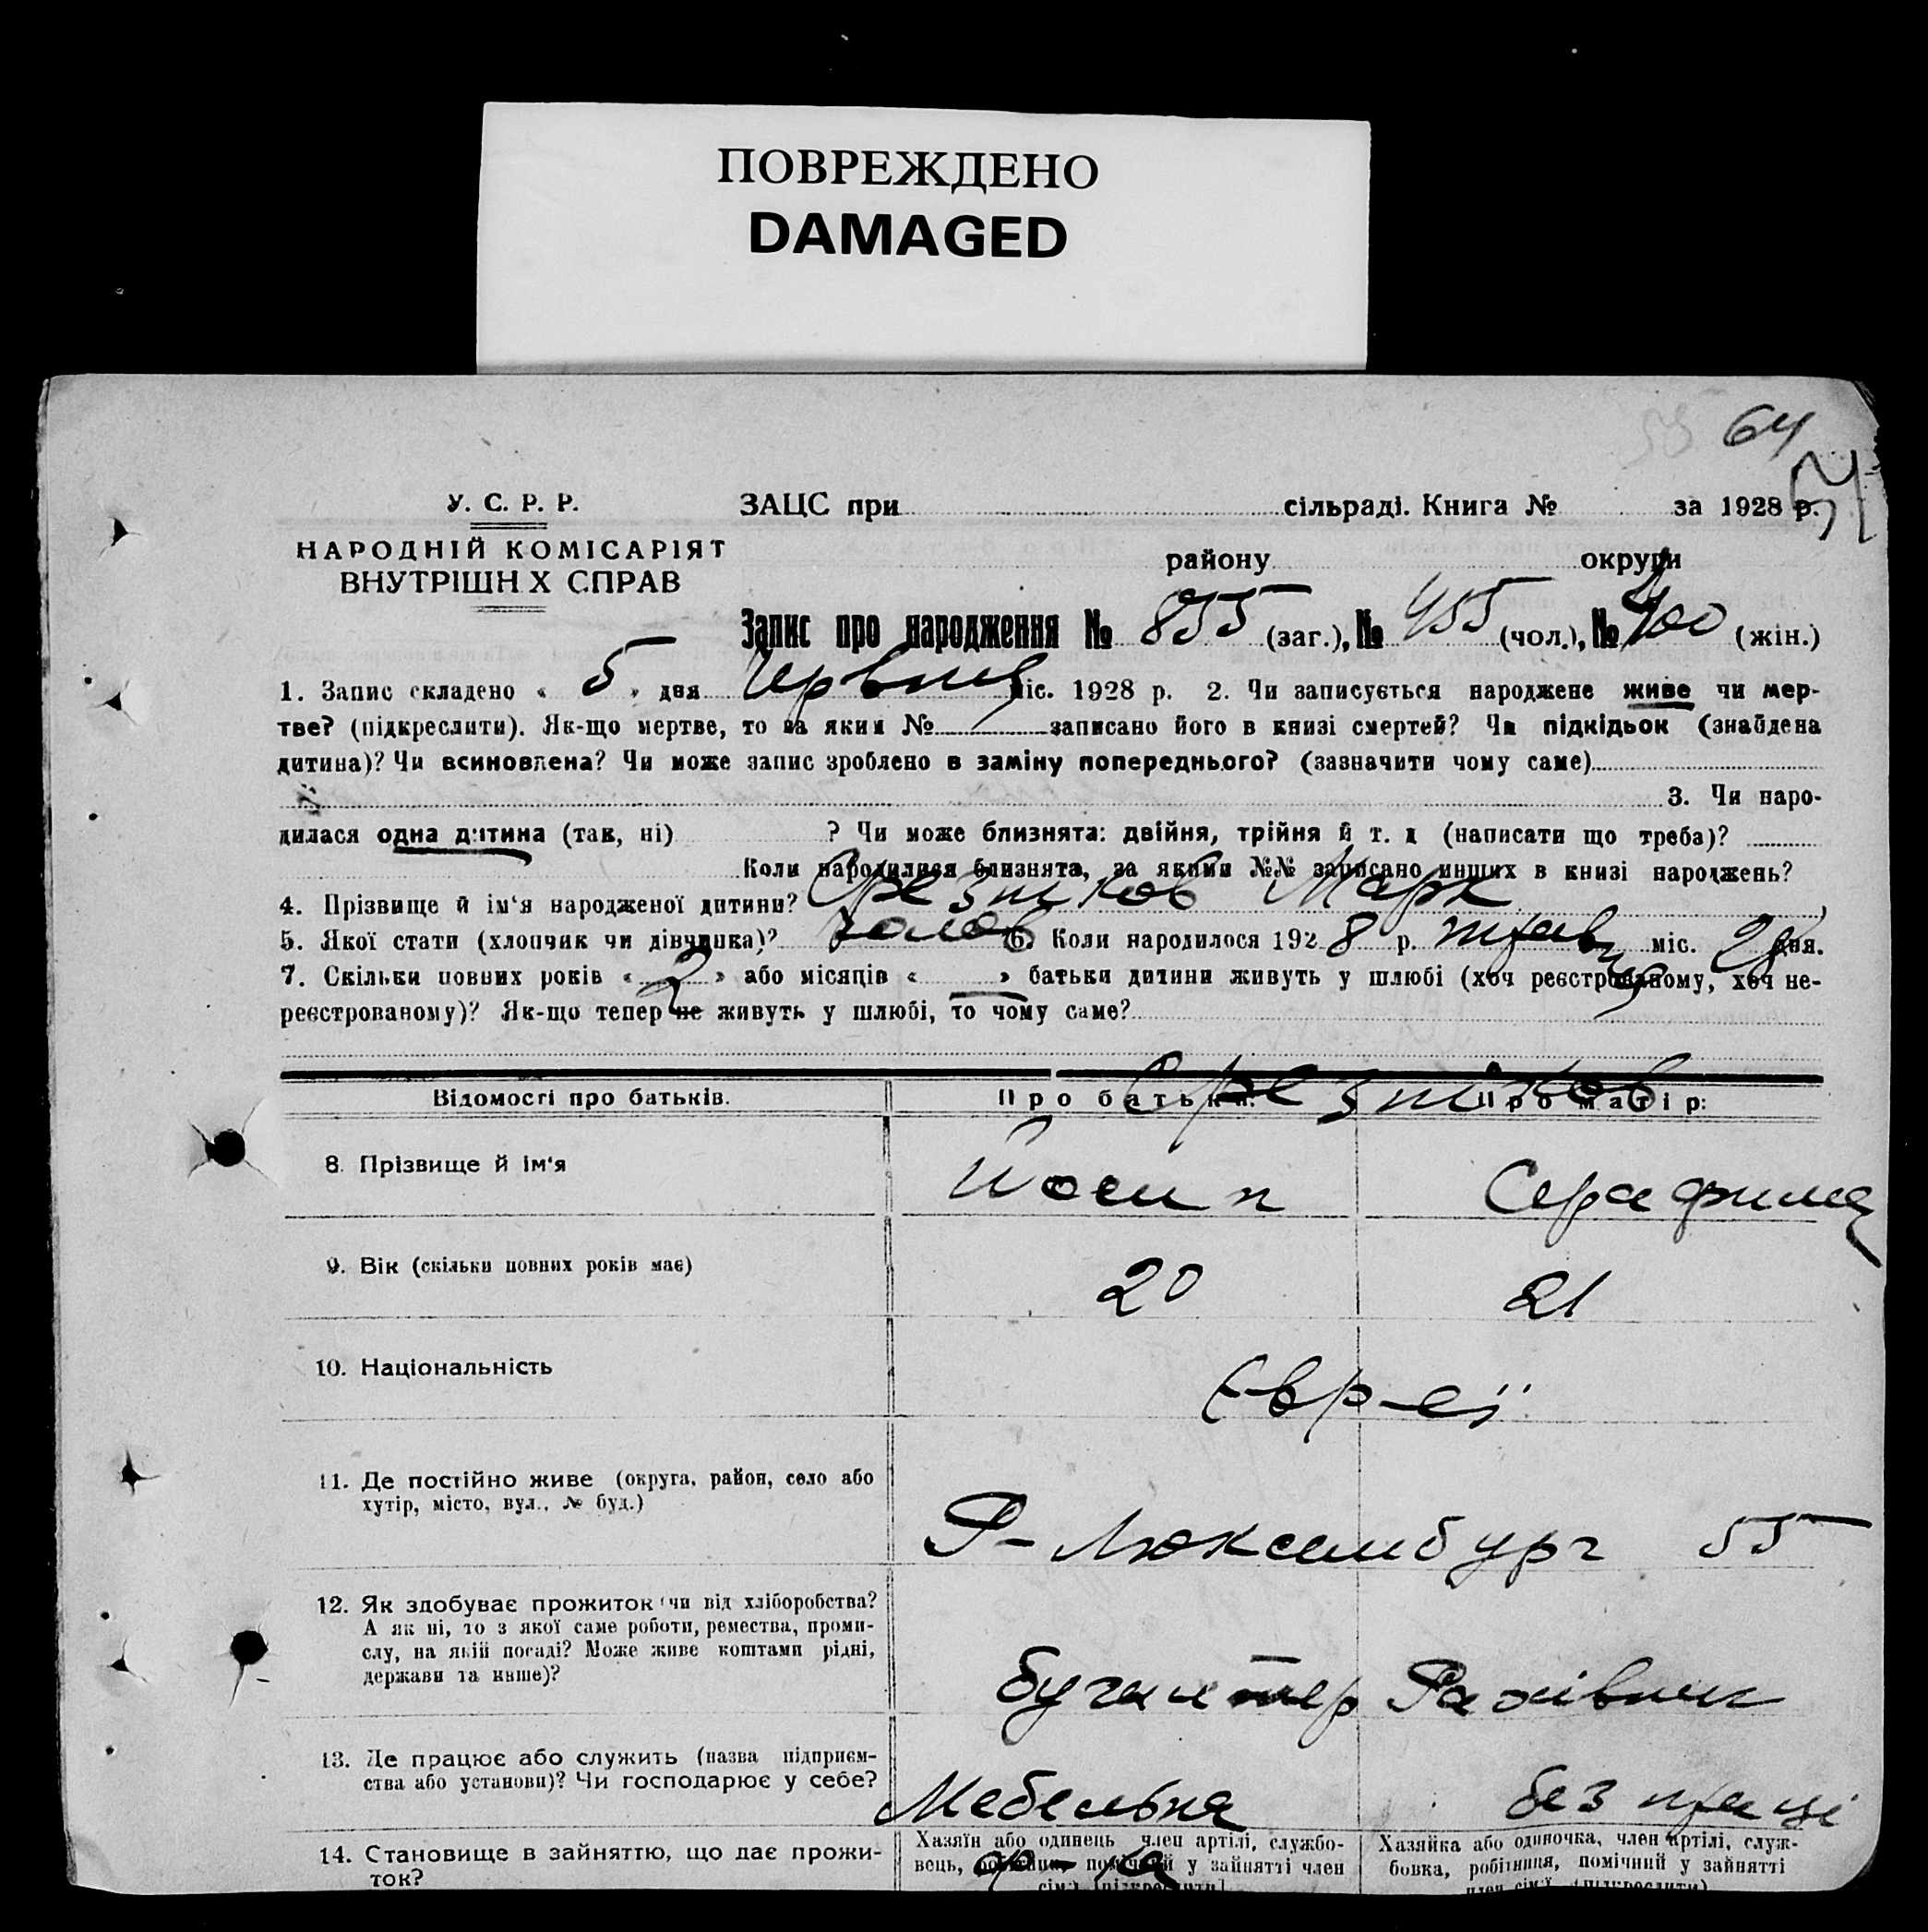 ПОВРЕЖДЕНО
DAMAGED
64
У. С. Р. Р.
НАРОДНІЙ КОМІСАРІЯТ
ВНУТРІШН Х СПРАВ
ЗАЦС при сільраді. Книга № за 1928 р.
району округи
Запис про народження № 855 (заг.), № 455 (чол.), № 400 (жін.)
1. Запис складено « 5 » дня Червня міс. 1928 р. 2. Чи записується народжене живе чи мер-
тве? (підкреслити). Як-що мертве, то за яким № записано його в книзі смертей? Чи підкідьок (знайдена
дитина)? Чи всиновлена? Чи може запис зроблено в заміну попереднього? (зазначити чому саме)
3. Чи наро-
дилася одна дитина (так, ні) ? Чи може близнята: двійня, трійня й т. д (написати що треба)?
Коли народилися близнята, за якими №№ записано инших в книзі народжень?
4. Прізвище й ім'я народженої дитини? Марк
5. Якої стати (хлопчик чи дівчинка)? 6. Коли народилося 192 8 р. травня міс. дня.
7. Скільки повних років « 2 » або місяців « » батьки дитини живуть у шлюбі (хоч реєстрованому, хоч не-
реєстрованому)? Як-що тепер не живуть у шлюбі, то чому саме?
Відомості про батьків. Про батька: Про матір:
8. Прізвище й ім'я Йосип Серафима
9. Вік (скільки повних років має) 20 21
10. Національність Євреї
11. Де постійно живе (округа, район, село або
хутір, місто, вул., № буд.)
Р-Люксембург 55
12. Як здобуває прожиток (чи від хліборобства?
А як ні, то з якої саме роботи, ремества, проми-
слу, на якій посаді? Може живе коштами рідні,
держави та инше)?
бухгалтер Рахівник
13. Де працює або служить (назва підприєм-
ства або установи)? Чи господарює у себе?
Мебельна без праці
ф-ка
14. Становище в зайняттю, що дає прожи-
ток?
Хазяїн або одинець член артілі, службо-
вець, робітник, помічний у зайнятті член
сім'ї (підкреслити)
Хазяйка або одиночка, член артілі, служ-
бовка, робітниця, помічний у зайнятті
член сім'ї (підкреслити)